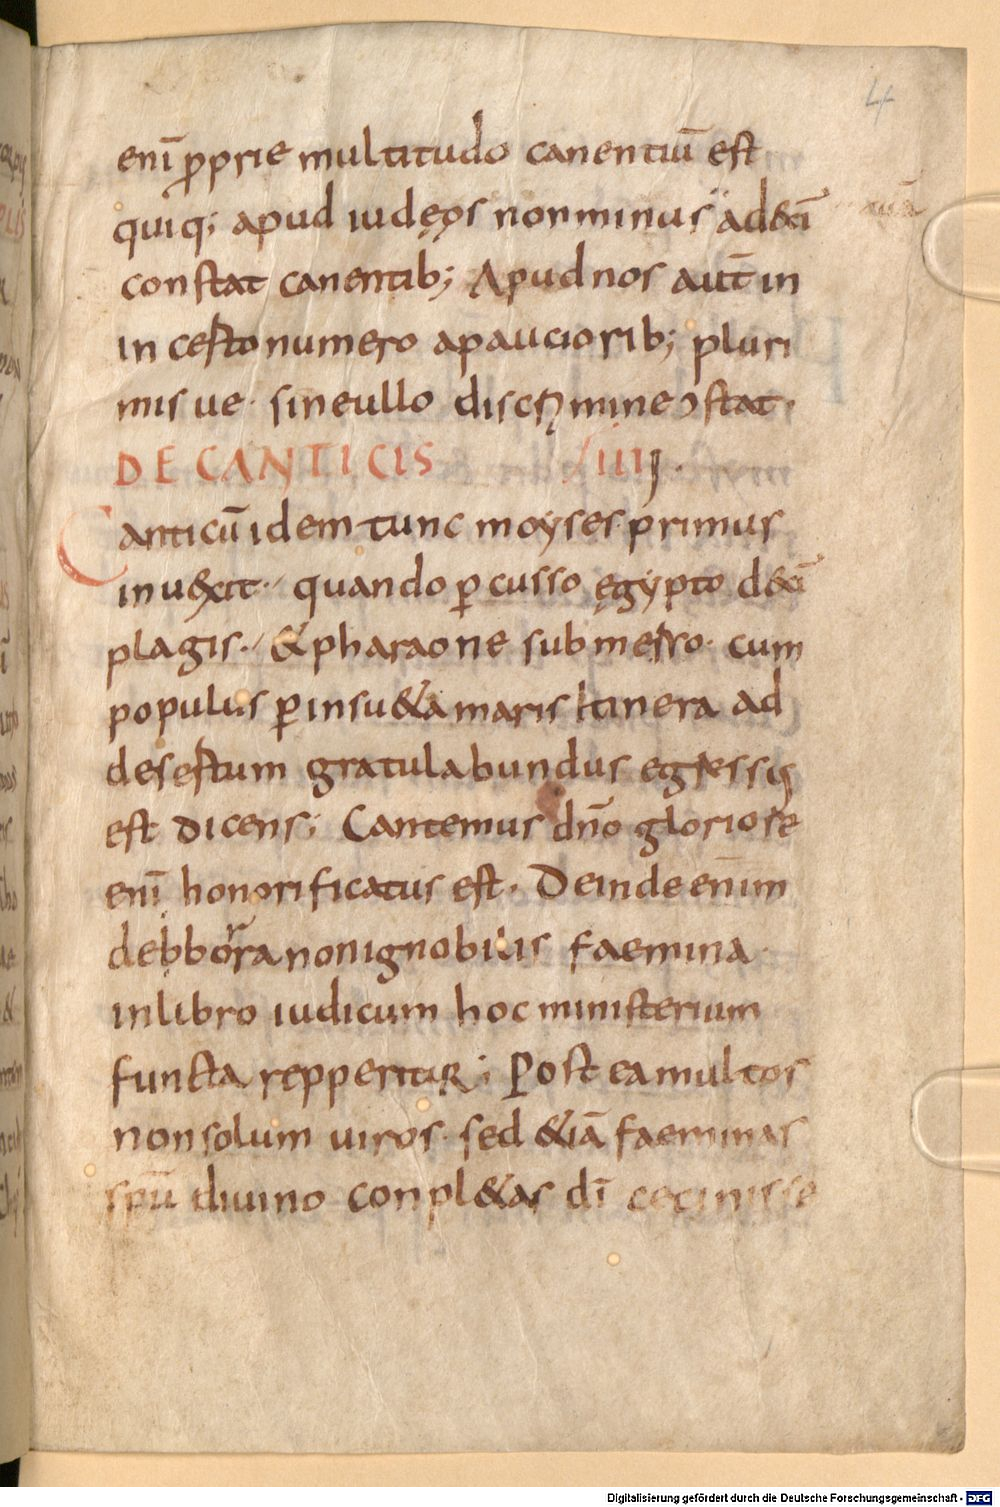 4
enī ꝓprie multitudo canentiū est
quiq; apud iudęos non minus a decē
constat canentib; Apud nos autē in
incerto numero a pauciorib; pluri
mis ue· sineullo discrimine ↄstat·
DE CANTICIS IIII
Canticū idem tunc moyses primus
inuexit· quando ꝑcusso ęgypto decē
plagis· & pharaone submerso· cum
populus ꝑ insu&a maris itinera ad
desertum gratulabundus egressus
est dicens; Cantemus dn̄o gloriose
enī honorificatus est· Deinde enim
debbora non ignobilis faemina·
in libro iudicum hoc ministerium
functa repperitur; Postea multos
non solum uiros· sed &iā faeminas
spū diuino conpl&as dī cecinisse
Digitalisierung gefördert durch die Deutsche Forschungsgemeinschaft - DFG